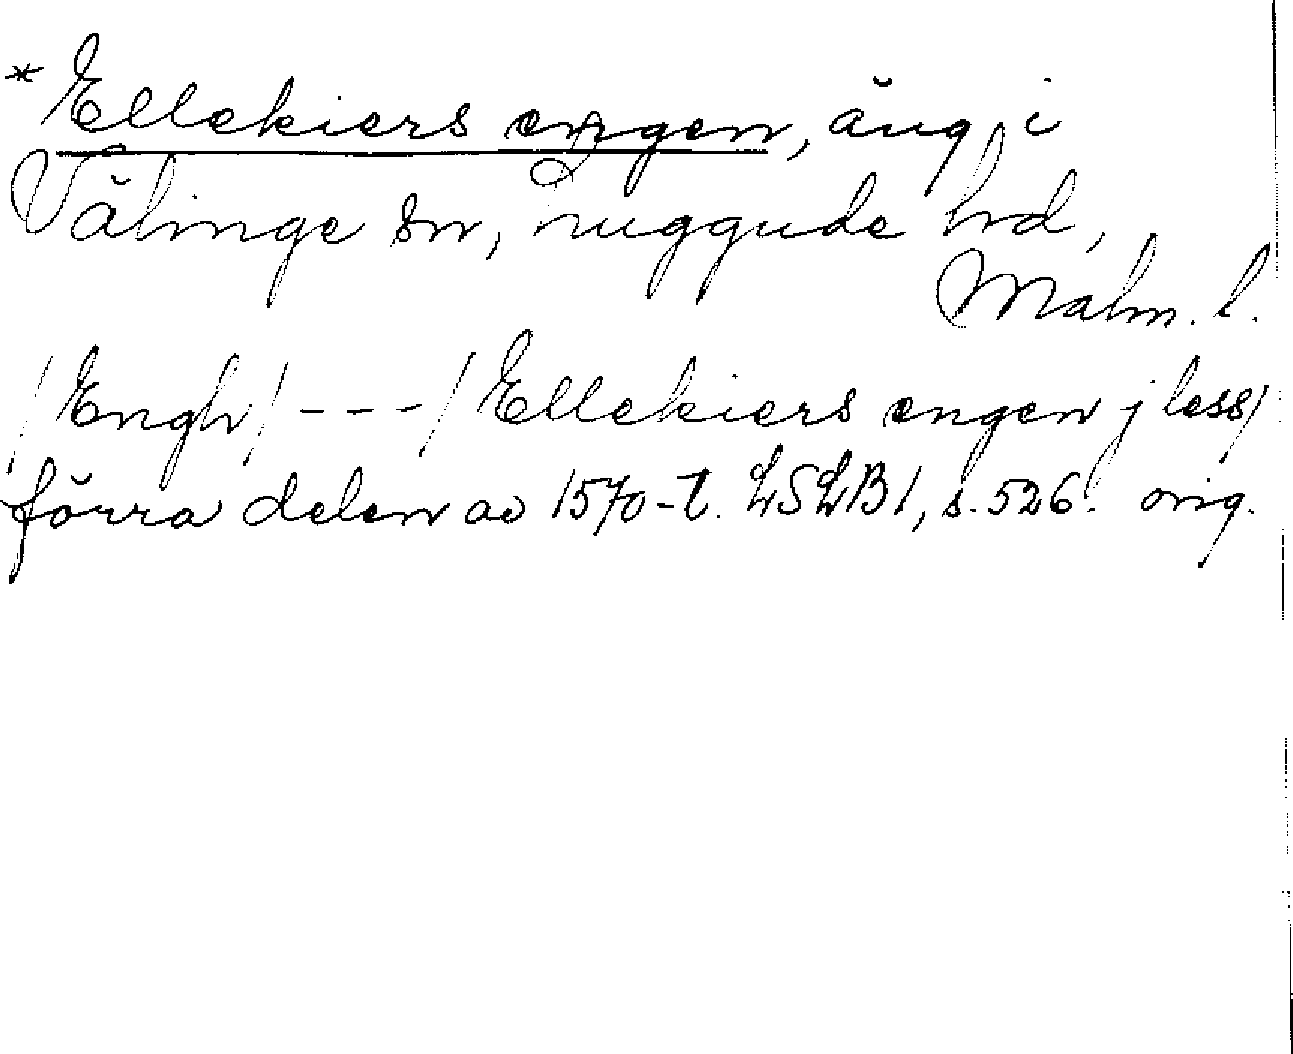 *Ellekiers engen, äng i
Välinge sn, Luggude hd,
Malm. l.
/Engh/---/Ellekiers engen j less/
förra delen av 1570-t. LSLB1, s. 526. orig.